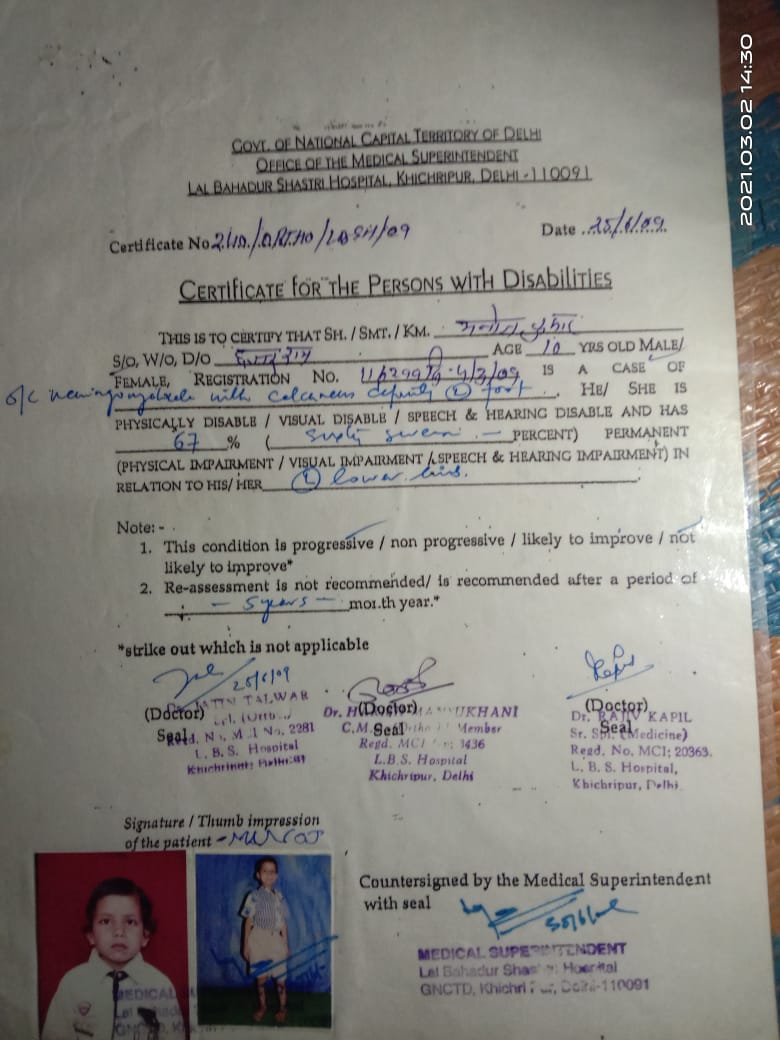 GOVT. OF NATIONAL CAPITAL TERRITORY OF DELHI
OFFICE OF THE MEDICAL SUPERINTENDENT
LAL BAHADUR SHASTRI HOSPITAL, KHICHRIPUR, DELHI-110091
Certificate No /ORTHO/LBSH/09 Date 25/6/09
CERTIFICATE FOR THE PERSONS WITH DISABILITIES
THIS IS TO CERTIFY THAT SH. / SMT. / KM. कुमार
S/O, W/O, D/O AGE 10 YRS OLD MALE/
FEMALE, REGISTRATION NO. 4/3/09 IS A CASE OF
o/c with calcaneus deformity (L) foot. HE/ SHE IS
PHYSICALLY DISABLE / VISUAL DISABLE / SPEECH & HEARING DISABLE AND HAS
67 % ( Sixty seven - PERCENT) PERMANENT
(PHYSICAL IMPAIRMENT / VISUAL IMPAIRMENT / SPEECH & HEARING IMPAIRMENT) IN
RELATION TO HIS/ HER (L) lower limb.
Note: -
1. This condition is progressive / non progressive / likely to improve / not
likely to improve*
2. Re-assessment is not recommended/ is recommended after a period of
- 5 years - month year.*
*strike out which is not applicable
25/6/09
(Doctor) (Doctor) (Doctor)
Seal Seal Seal
TALWAR
Regd. No. 2281
L. B. S. Hospital
Khichripur, Delhi-91
Dr. UKHANI
Member
Regd. MCI 1436
L.B.S. Hospital
Khichripur, Delhi
Dr. RAJIV KAPIL
Sr. Spl. (Medicine)
Regd. No. MCI: 20363.
L. B. S. Hospital,
Khichripur, Delhi.
Signature / Thumb impression
of the patient -
Countersigned by the Medical Superintendent
with seal
MEDICAL SUPERINTENDENT
Lal Bahadur Shastri Hospital
GNCTD, Khichri Pur, Delhi-110091
2021.03.02 14:30